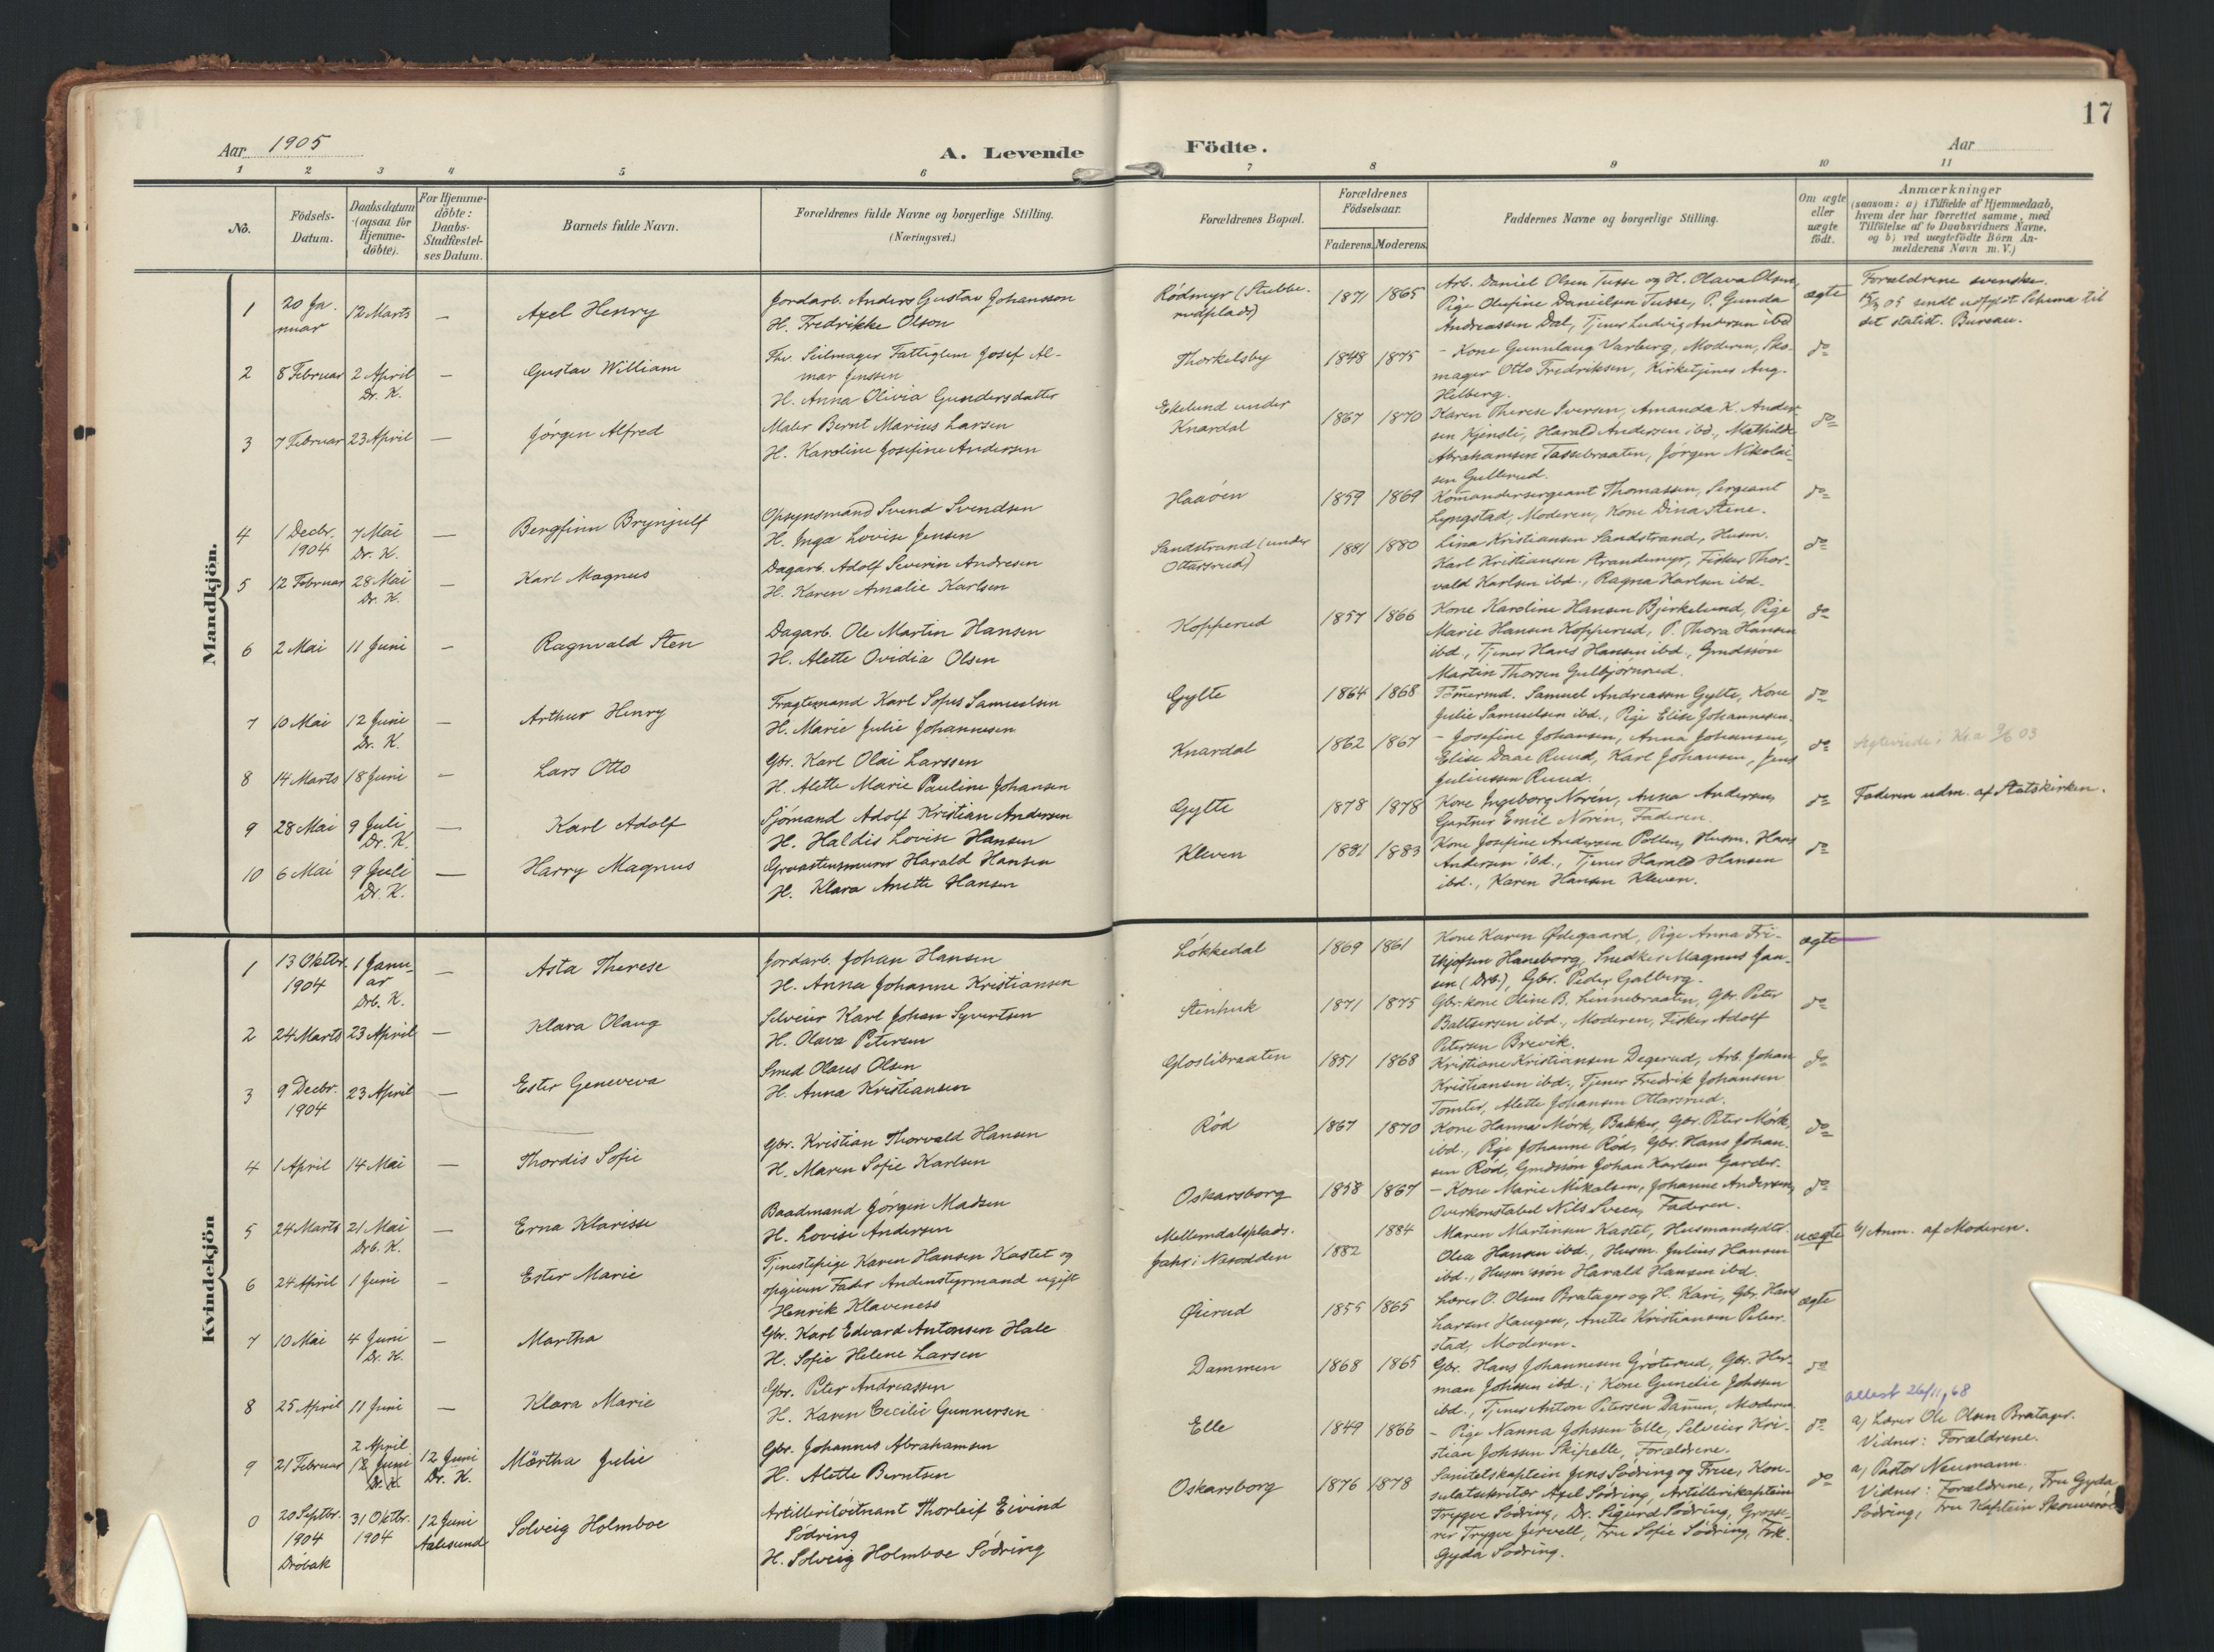 17
Aar 1905
A. Levende Födte.
Aar
1 2 3 4 5 6 7 8 9 10 11
No.
Födsels-Datum.
Daabsdatum (ogsaa for Hjemme-döbte).
For Hjemme-döbte: Daabs-Stadfæstel-ses Datum.
Barnets fulde Navn.
Forældrenes fulde Navne og borgerlige Stilling. (Næringsvei.)
Forældrenes Bopæl.
Forældrenes Födselsaar.
Faderens. Moderens.
Faddernes Navne og borgerlige Stilling.
Om ægte eller uægte födt.
Anmærkninger (saasom: a) i Tilfælde af Hjemmedaab, hvem der har forrettet samme, med Tilföielse af to Daabsvidners Navne, og b) ved uægtefödte Börn An-melderens Navn m. V.)
Mandkjön.
1 20 Ja-nuar 12 Marts — Axel Henry
Jordarb. Anders Gustav Johansson
H. Fredrikke Olson
Rödmyr (Stubbe-rudplads) 1871 1865
Arb. Daniel Olsen Tusse og H. Olava Olsen,
Pige Olufine Danielsen Tusse, P. Gunda
Andreassen Dal, Tjener Ludvig Andersen ibd
ægte
Forældrene svenske.
05 sendt udfyldt Schema til
det statist. Bureau.
2 8 Februar 2 April Dr. K. — Gustav William
Fhv. Seilmager Fattiglem Josef Al-
mar Jenssen
H. Anna Olivia Gundersdatter
Thorkelsby 1848 1875
- Kone Gunnlaug Varberg, Moderen, Sko-
mager Otto Fredriksen, Kirketjener Aug.
Helberg.
do
3 7 Februar 23 April — Jörgen Alfred
Maler Bernt Marius Larsen
H. Karoline Josefine Andersen
Ekelund under Knardal 1867 1870
Karen Therese Iversen, Amanda K. Ander-
sen Kjensli, Harald Andersen ibd., Mathilde
Abrahamsen Tassebraaten, Jörgen Nikolai-
sen Gullerud.
do
4 1 Decbr. 1904 7 Mai Dr. K. — Bergfinn Brynjulf
Opsynsmand Svend Svendsen
H. Inga Lovise Jensen
Haaöen 1859 1869
Komandersergeant Thomassen, Sergeant
Lyngstad, Moderen, Kone Dina Stene.
do
5 12 Februar 28 Mai Dr. K. — Karl Magnus
Dagarb. Adolf Severin Andresen
H. Karen Amalie Karlsen
Sandstrand (under Ottarsrud) 1881 1880
Lina Kristiansen Sandstrand, Husm.
Karl Kristiansen Strandemyr, Fisker Thor-
vald Karlsen ibd., Ragna Karlsen ibd.
do
6 2 Mai 11 Juni — Ragnvald Sten
Dagarb. Ole Martin Hansen
H. Alette Ovidia Olsen
Kopperud 1857 1866
Kone Karoline Hansen Bjerkelund, Pige
Marie Hansen Kopperud, P. Thora Hansen
ibd., Tjener Hans Hansen ibd., Gmdssön
Martin Thorsen Gulbjörnrud.
do
7 10 Mai 12 Juni Dr. K. — Arthur Henry
Fragtemand Karl Sofus Samuelsen
H. Marie Julie Johannesen
Gylte 1864 1868
Tömermd. Samuel Andreassen Gylte, Kone
Julie Samuelsen ibd., Pige Elise Johannesen.
do
8 14 Marts 18 Juni — Lars Otto
Gbr. Karl Olai Larssen
H. Alette Marie Pauline Johansen
Knardal 1862 1867
- Josefine Johansen, Anna Johansen,
Elise Daae Ruud, Karl Johansen, Jens
Juliussen Ruud.
do
03
9 28 Mai 9 Juli Dr. K. — Karl Adolf
Sjömand Adolf Kristian Andersen
H. Haldis Lovise Hansen
Gylte 1878 1878
Kone Ingeborg Norén, Anna Andersen,
Gartner Emil Noren, Faderen.
do
Faderen udm. af Statskirken.
10 6 Mai 9 Juli Dr. K. — Harry Magnus
Graastensmurer Harald Hansen
H. Klara Anette Hansen
Kleven 1881 1883
Kone Josefine Andersen Pollen, Husm. Hans
Andersen ibd., Tjener Harald Hansen
ibd., Karen Hansen Kleven.
do
Kvindekjön
1 13 Oktbr. 1904 1 Janu-ar Drb. K. — Asta Therese
Jordarb. Johan Hansen
H. Anna Johanne Kristiansen
Lökkedal 1869 1861
Kone Karen Ødegaard, Pige Anna Fri-
thjofsen Haneborg, Snedker Magnus Jan-
sen (Drb), Gbr. Peder Galberg.
ægte
2 24 Marts 23 April — Klara Olaug
Selveier Karl Johan Syvertsen
H. Olava Petersen
Stenhuk 1871 1875
Gbr.kone Oline B. Linnebraaten, Gbr. Peter
Baltsersen ibd., Moderen, Fisker Adolf
Petersen Brevik.
do
3 9 Decbr. 1904 23 April — Ester Geneveva
Smed Olaus Olsen
H. Anna Kristiansen
Gloslibraaten 1851 1868
Kristiane Kristiansen Degerud, Arb. Johan
Kristiansen ibd., Tjener Fredrik Johansen
Tomter, Alette Johansen Ottarsrud.
do
4 1 April 14 Mai — Thordis Sofie
Gbr. Kristian Thorvald Hansen
H. Maren Sofie Karlsen
Röd 1867 1870
Kone Hanna Mörk, Bakker, Gbr. Peter Mörk,
ibd., Pige Johanne Röd, Gbr. Hans Johan-
sen Röd, Gmdssön Johan Karlsen Garder.
do
5 24 Marts 21 Mai Drb. K. — Erna Klarisse
Baadmand Jörgen Madsen
H. Lovise Andersen
Oskarsborg 1858 1867
- Kone Marie Mikalsen, Johanne Andersen,
Overkonstabel Nils Sveen, Faderen.
do
6 24 April 1 Juni — Ester Marie
Tjenestepige Karen Hansen Kastet og
opgiven Fader Andenstyrmand ugift
Henrik Klaveness
Mellemdalsplads. 1884
Jahr i Nasodden 1882
Maren Martinsen Kastet, Husmandsdtr.
Olea Hansen ibd., Husm. Julius Hansen
ibd., Husm.ssön Harald Hansen ibd.
uægte
b) Anm. af Moderen.
7 10 Mai 4 Juni Dr. K. — Martha
Gbr. Karl Edvard Antonsen Hale
H. Sofie Helene Larsen
Øierud 1855 1865
Lærer O. Olsen Bratager og H. Kari, Gbr. Hans
Larsen Haugen, Anette Kristiansen Peter-
stad, Moderen.
ægte
8 25 April 11 Juni — Klara Marie
Gbr. Peter Andreassen
H. Karen Cecilie Gunnersen
Dammen 1868 1865
Gbr. Hans Johannesen Gröterud, Gbr. Her-
man Johssen ibd.; Kone Gunelie Johssen
ibd., Tjener Anton Petersen Damen, Moderen
do
9 21 Februar 2 April 12 Juni Dr. K. 12 Juni Dr. K. Märtha Julie
Gbr. Johannes Abrahamsen
H. Alette Berntsen
Elle 1849 1866
- Pige Nanna Johssen Elle, Selveier Kri-
stian Johssen Skipelle, Forældrene.
do
attest 26/11 68
a) Lærer Ole Olsen Bratager.
Vidner: Forældrene.
0 20 Septbr. 1904 Dröbak 31 Oktbr. 1904 12 Juni Aalesund Solveig Holmboe
Artilleriløitnant Thorleif Eivind
Södring
H. Solveig Holmboe Södring
Oskarsborg 1876 1878
Sanitetskaptein Jens Södring og Frue, Kon-
sulatsekretær Axel Södring, Artillerikaptein
Trygve Södring, Dr. Sigurd Södring, Grosse-
rer Trygve Jervell, Fru Sofie Södring, Frk.
Gyda Södring.
do
a) Pastor Neumann.
Vidner: Forældrene, Fru Gyda
Södring, Fru Kaptein